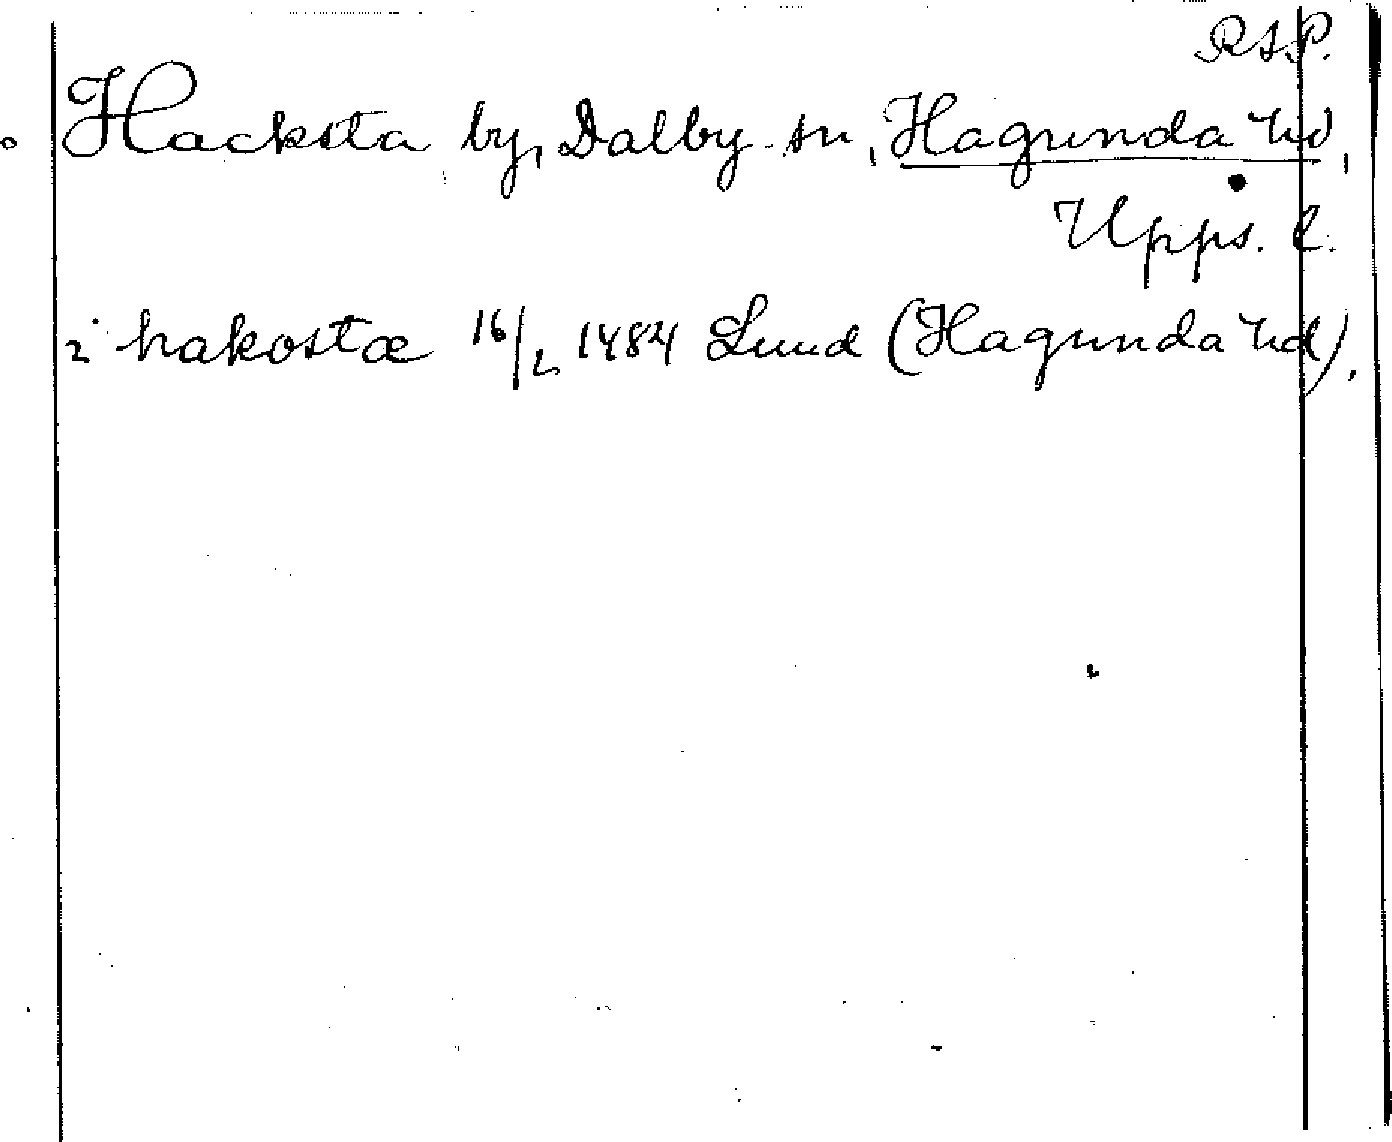 RAP.
Hacksta by, Dalby sn, Hagunda hd,
Upps. l.
i hakostæ 16/2 1484 Lund (Hagunda hd).